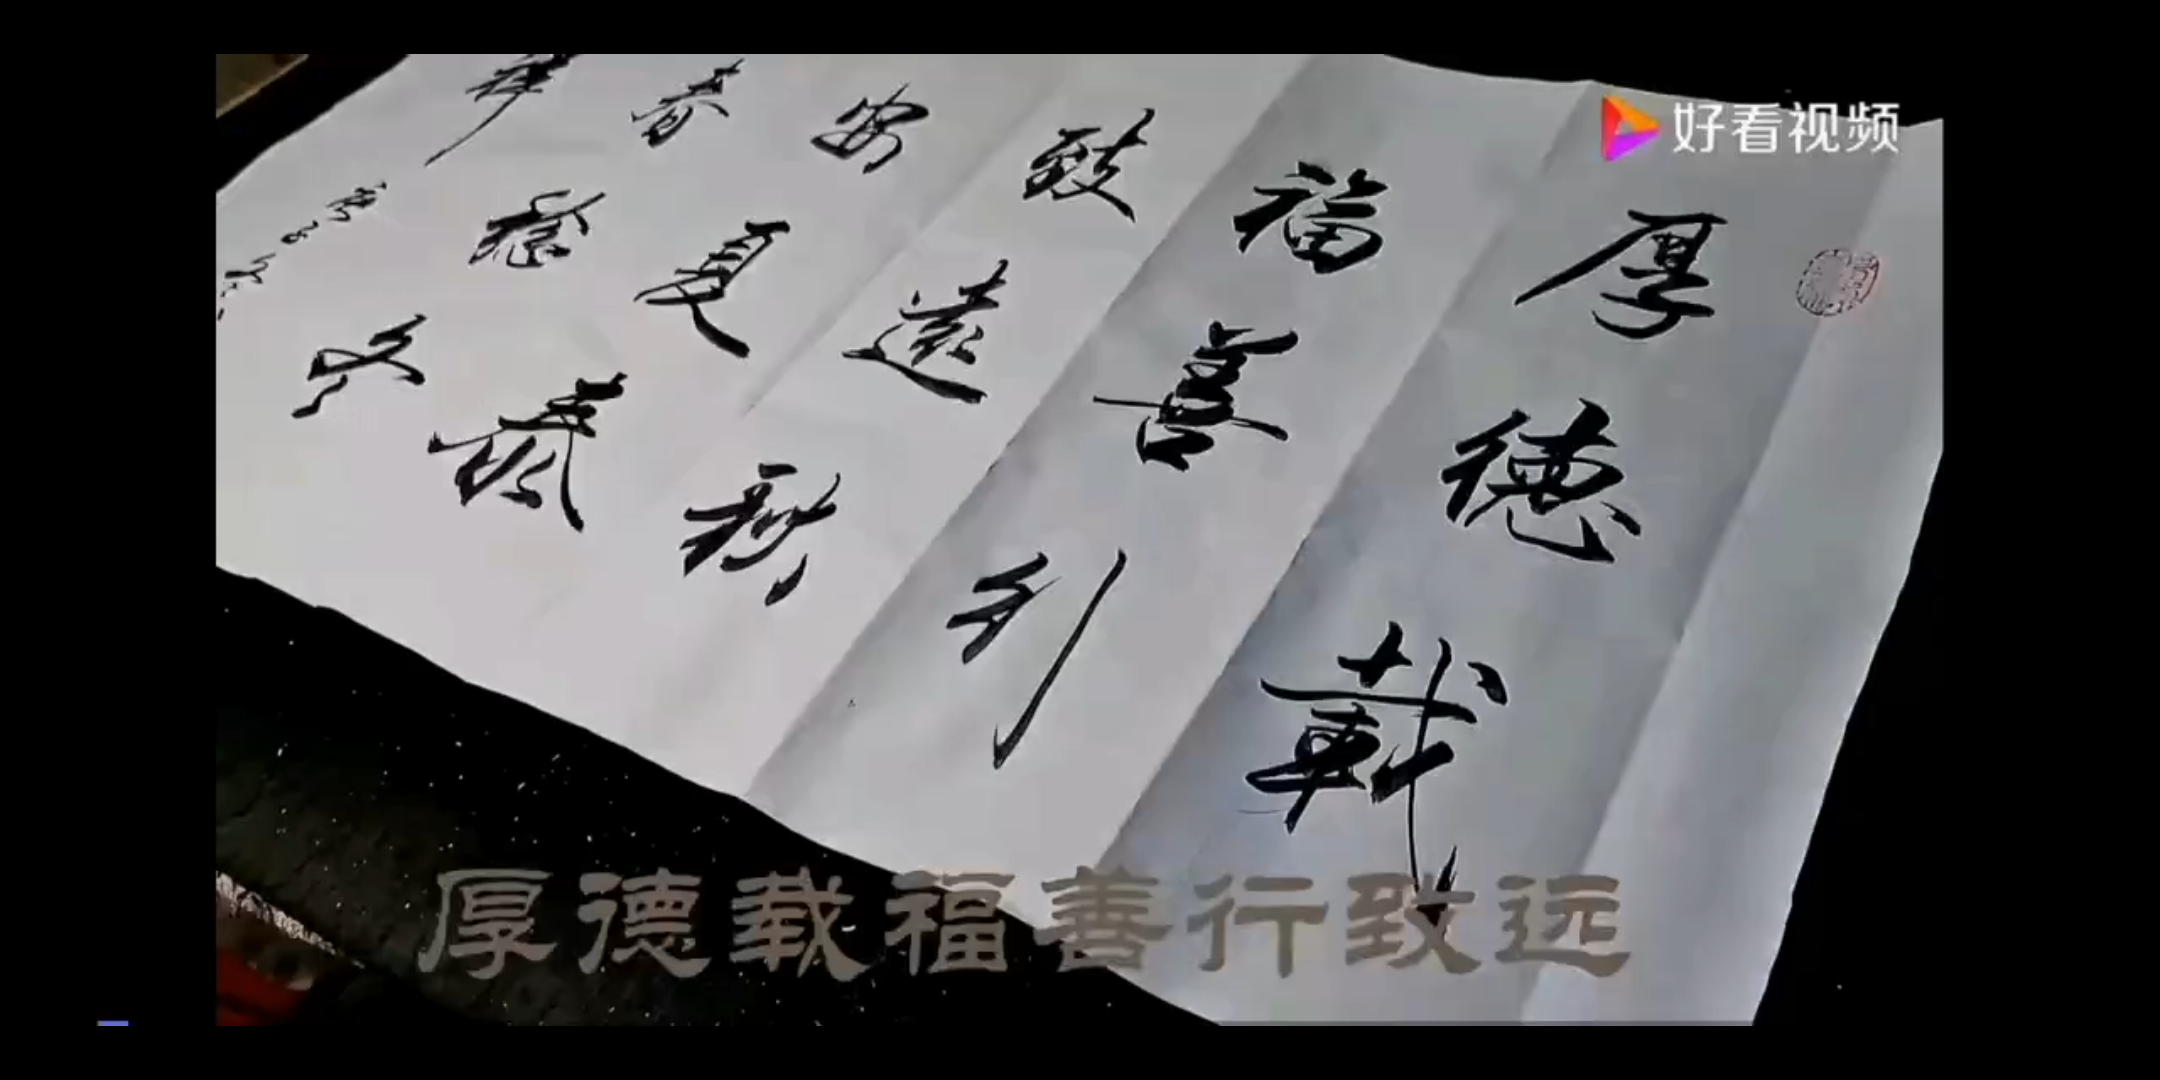 好看视频
厚德載
福善行
致遠秋
安夏泰
春稔冬
祥
厚德载福善行致远